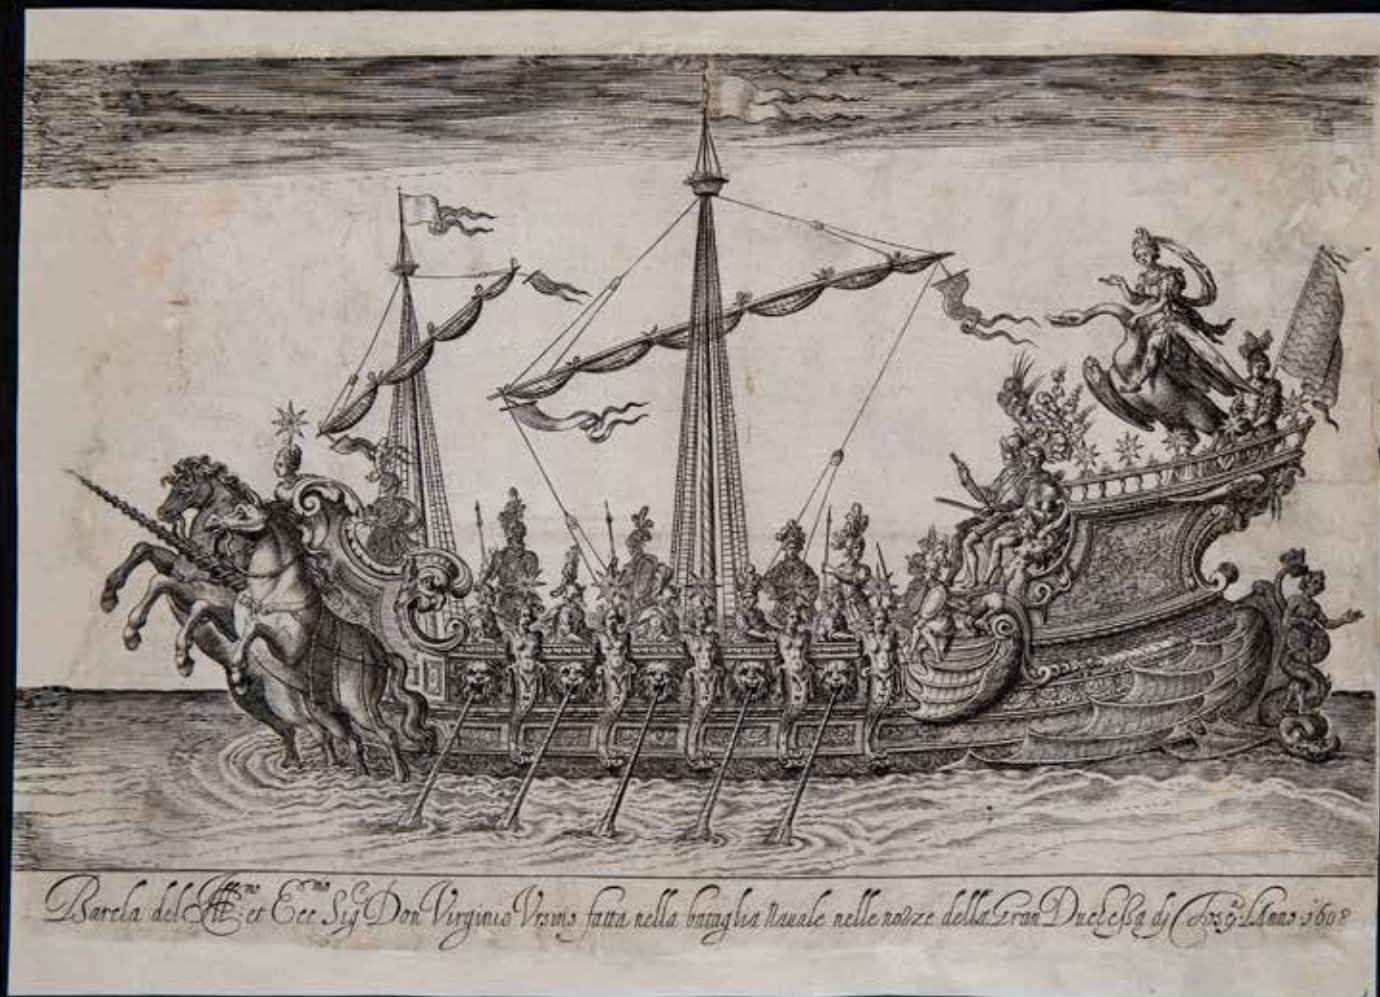 Barca del Ill.mo et Ecc.mo Sig.r Don Virginio Vrsino fatta nella bataglia Nauale nelle nozze della Gran Duchessa di Tosc. L'Anno 1608